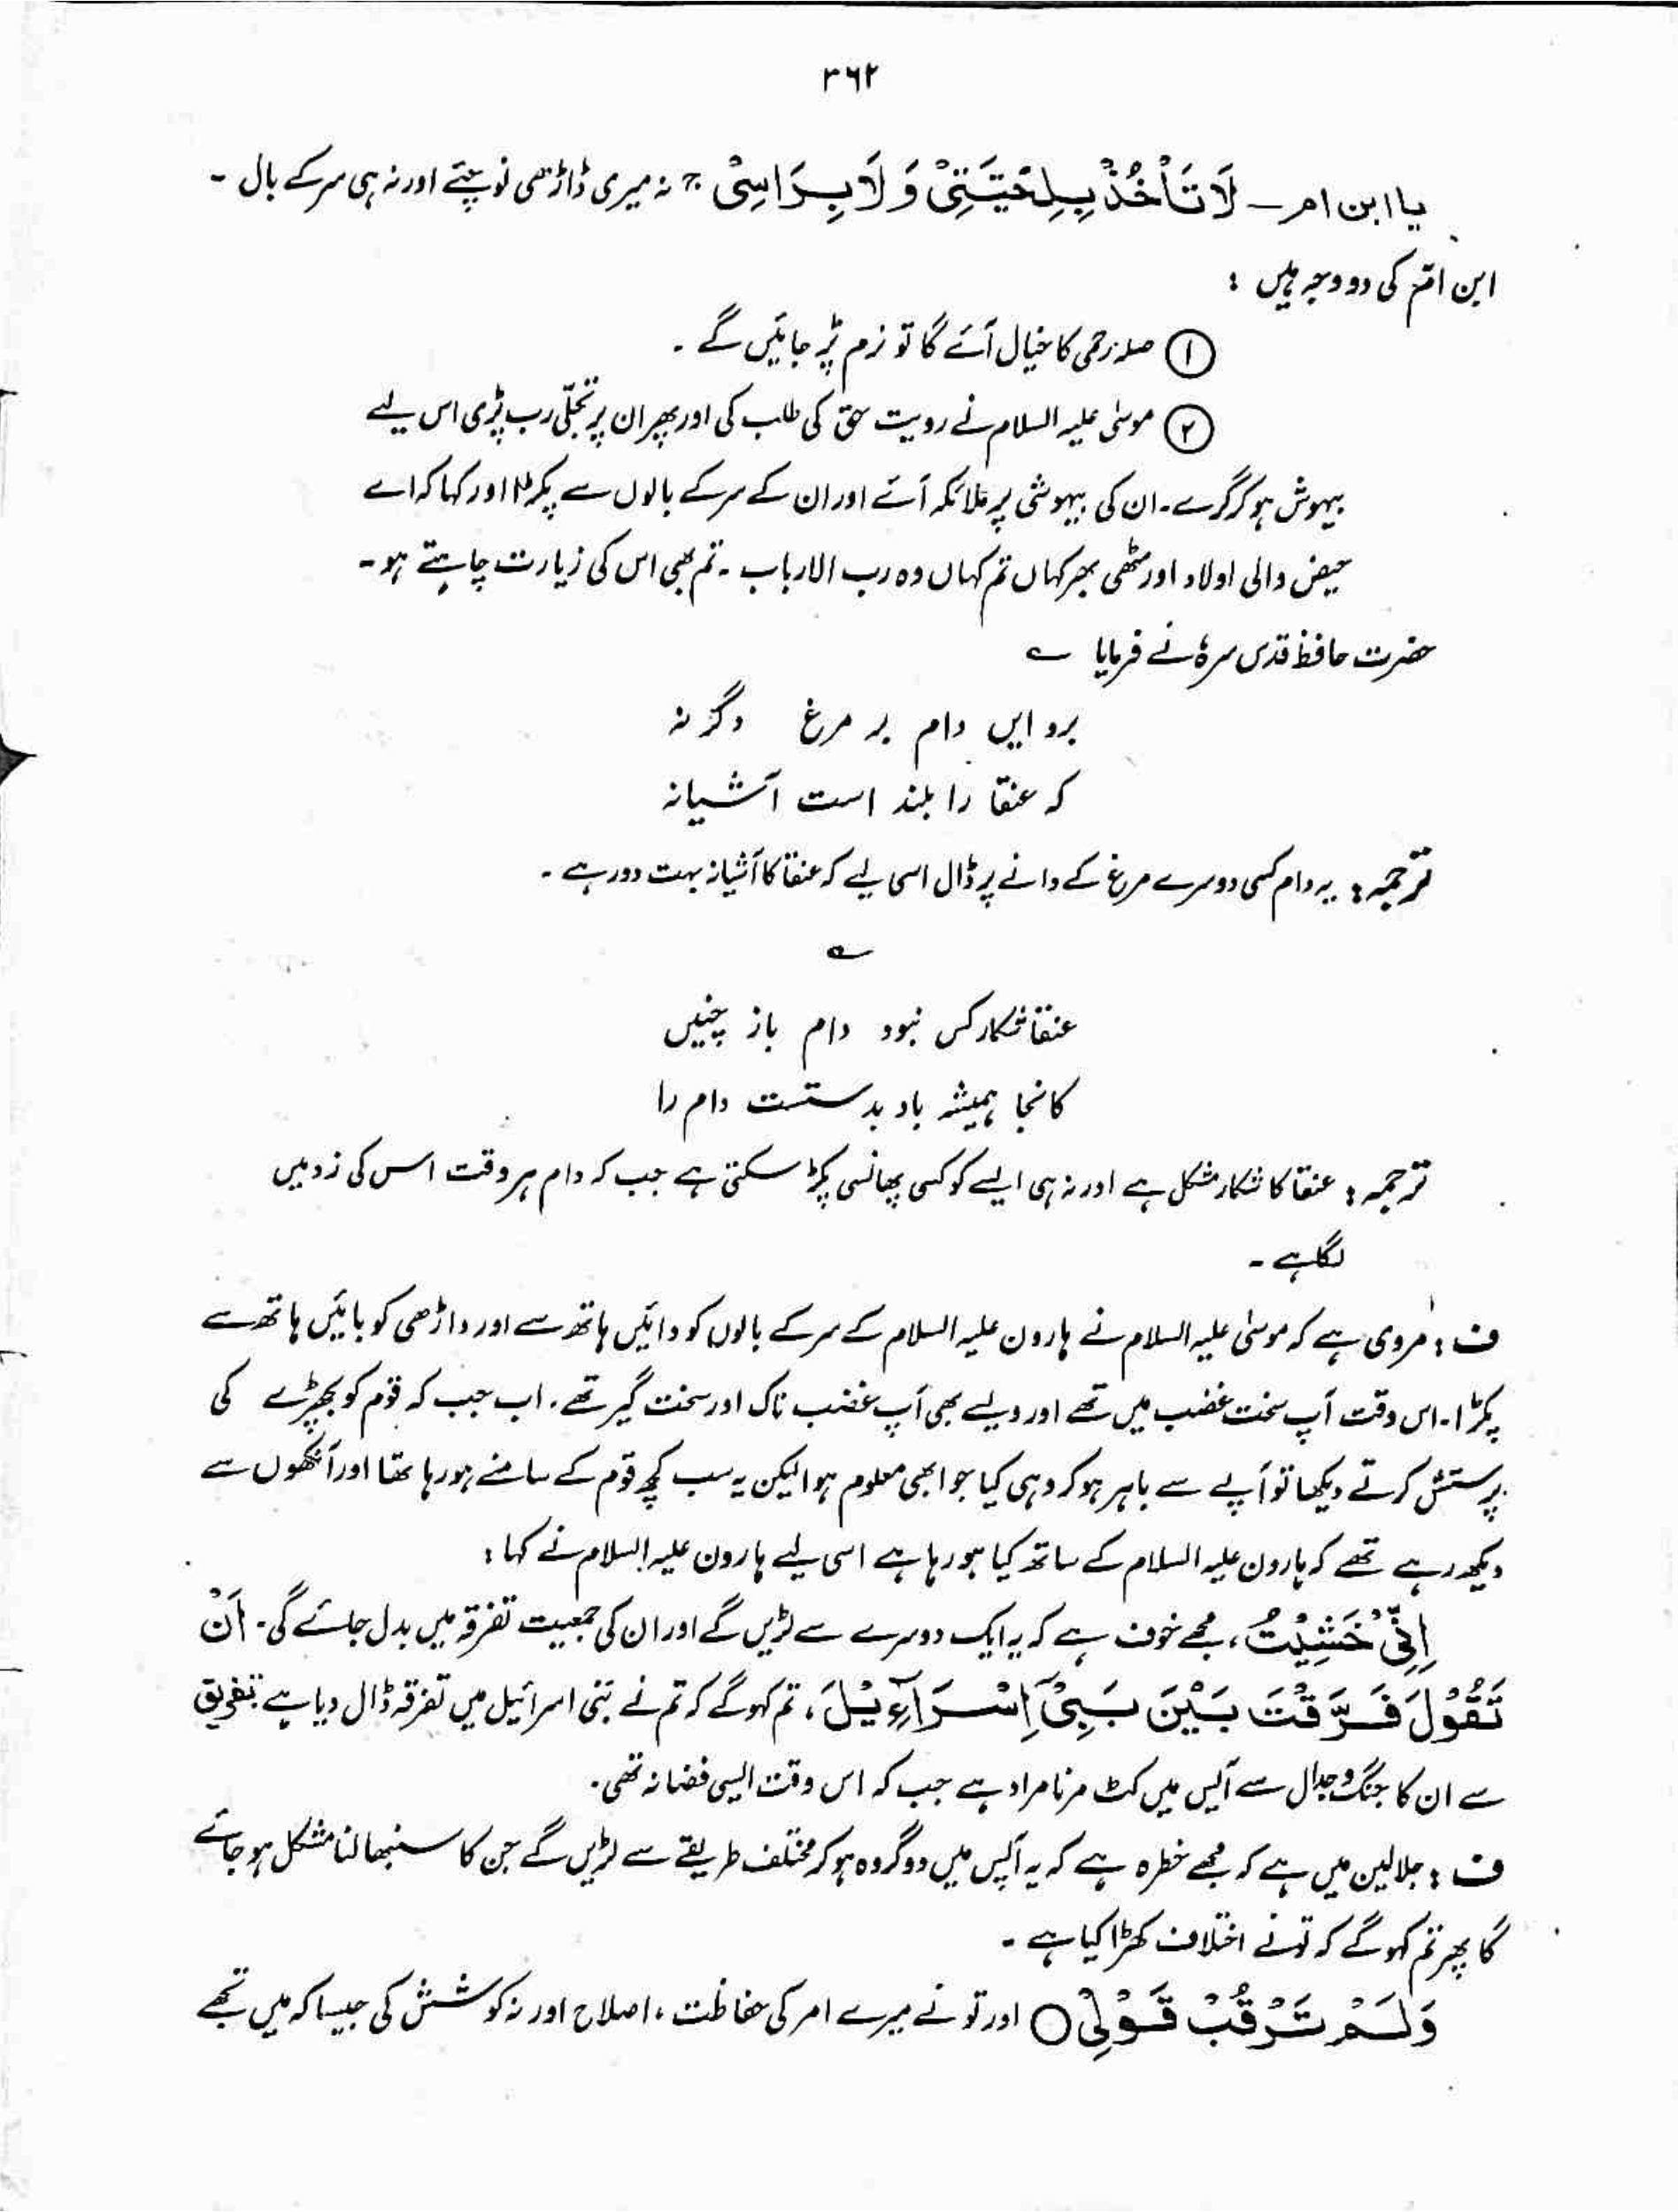 ۳۶۲
یا ابن ام ـ لَا تَاْخُذْ بِلِحْیَتِیْ وَ لَا بِرَاسِیْ ج نہ میری ڈاڑھی نوچئے اور نہ ہی سر کے بال ۔
ابن امّ کی دو وجہ ہیں :
① صلہ رحمی کا خیال آئے گا تو نرم پڑ جائیں گے ۔
② موسیٰ علیہ السلام نے رویت حق کی طلب کی اور پھر ان پر تجلّی رب پڑی اس لیے
بیہوش ہو کر گرے ۔ ان کی بیہوشی پر ملائکہ آئے اور ان کے سر کے بالوں سے پکڑا اور کہا کہ اے
حیض والی اولاد اور مٹھی بھر کہاں تم کہاں وہ رب الارباب ۔ تم بھی اس کی زیارت چاہتے ہو ۔
حضرت حافظ قدس سرہٗ نے فرمایا ؎
برو ایں دام بر مرغ دگر نہ
کہ عنقا را بلند است آشیانہ
ترجمہ : یہ دام کسی دوسرے مرغ کے دانے پر ڈال اسی لیے کہ عنقا کا آشیانہ بہت دور ہے ۔
؎
عنقا شکار کس نبود دام باز چنیں
کانجا ہمیشہ باد بدست است دام را
ترجمہ : عنقا کا شکار مشکل ہے اور نہ ہی ایسے کو کسی پھانسی پکڑ سکتی ہے جب کہ دام ہر وقت اس کی زد میں
لگا ہے ۔
ف : مروی ہے کہ موسیٰ علیہ السلام نے ہارون علیہ السلام کے سر کے بالوں کو دائیں ہاتھ سے اور داڑھی کو بائیں ہاتھ سے
پکڑا ۔ اس وقت آپ سخت غضب میں تھے اور ویسے بھی آپ غضب ناک اور سخت گیر تھے ۔ اب جب کہ قوم کو بچھڑے کی
پرستش کرتے دیکھا تو آپے سے باہر ہو کر وہی کیا جو ابھی معلوم ہوا لیکن یہ سب کچھ قوم کے سامنے ہو رہا تھا اور آنکھوں سے
دیکھ رہے تھے کہ ہارون علیہ السلام کے ساتھ کیا ہو رہا ہے اسی لیے ہارون علیہ السلام نے کہا :
اِنِّیْ خَشِیْتُ ، مجھے خوف ہے کہ یہ ایک دوسرے سے لڑیں گے اور ان کی جمعیت تفرقہ میں بدل جائے گی ۔ اَنْ
تَقُوْلَ فَرَّقْتَ بَیْنَ بَنِیْٓ اِسْرَآءِیْلَ ، تم کہو گے کہ تم نے بنی اسرائیل میں تفرقہ ڈال دیا ہے تفریق
سے ان کا جنگ و جدال سے آپس میں کٹ مرنا مراد ہے جب کہ اس وقت ایسی فضا نہ تھی ۔
ف : جلالین میں ہے کہ مجھے خطرہ ہے کہ یہ آپس میں دو گروہ ہو کر مختلف طریقے سے لڑیں گے جن کا سنبھالنا مشکل ہو جائے
گا پھر تم کہو گے کہ تو نے اختلاف کھڑا کیا ہے ۔
وَلَمْ تَرْقُبْ قَوْلِیْ ○ اور تو نے میرے امر کی حفاظت ، اصلاح اور نہ کوشش کی جیسا کہ میں تجھے